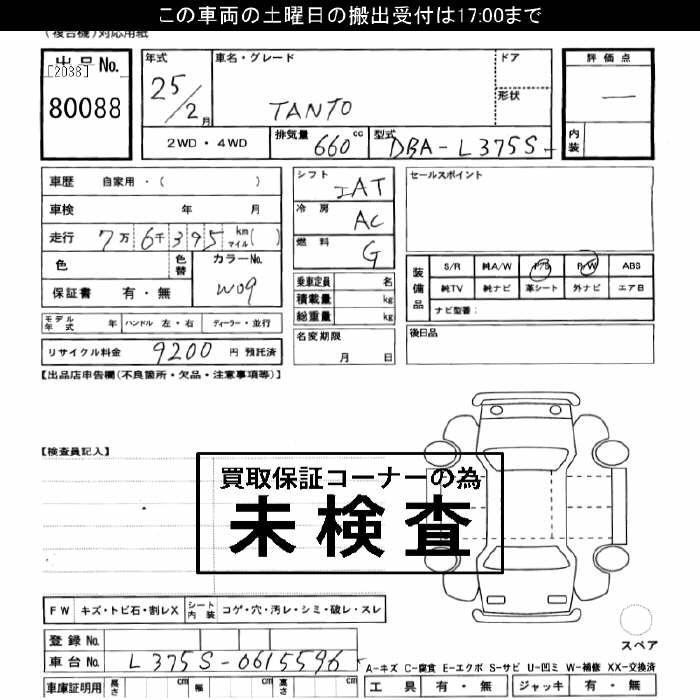 この車両の土曜日の搬出受付は17:00まで
(複合機)対応用紙
出品No.
[2038]
80088
年式
25/2月
車名・グレード
TANTO
ドア
形状
評価点
—
内装
2WD・4WD
排気量
660cc
型式
DBA-L375S-
車歴 自家用・( )
車検 年 月
走行 7万6千395km マイル( )
色
色替
カラーNo.
W09
保証書 有・無
モデル年式 年
ハンドル 左・右
ディーラー・並行
リサイクル料金 9200 円 預託済
シフト IAT
冷房 AC
燃料 G
乗車定員 名
積載量 kg
総重量 kg
名変期限
月 日
セールスポイント
装備品
S/R 純A/W P/S P/W ABS
純TV 純ナビ 革シート 外ナビ エアB
ナビ型番:
後日品
【出品店申告欄(不良箇所・欠品・注意事項等)】
【検査員記入】
買取保証コーナーの為
未検査
FW キズ・トビ石・割レX
シート内装 コゲ・穴・汚レ・シミ・破レ・スレ
スペア
登録No.
車台No. L375S-0615596
A-キズ C-腐食 E-エクボ S-サビ U-凹ミ W-補修 XX-交換済
車庫証明用 長さ cm 幅 cm 高さ cm
工具 有・無 ジャッキ 有・無